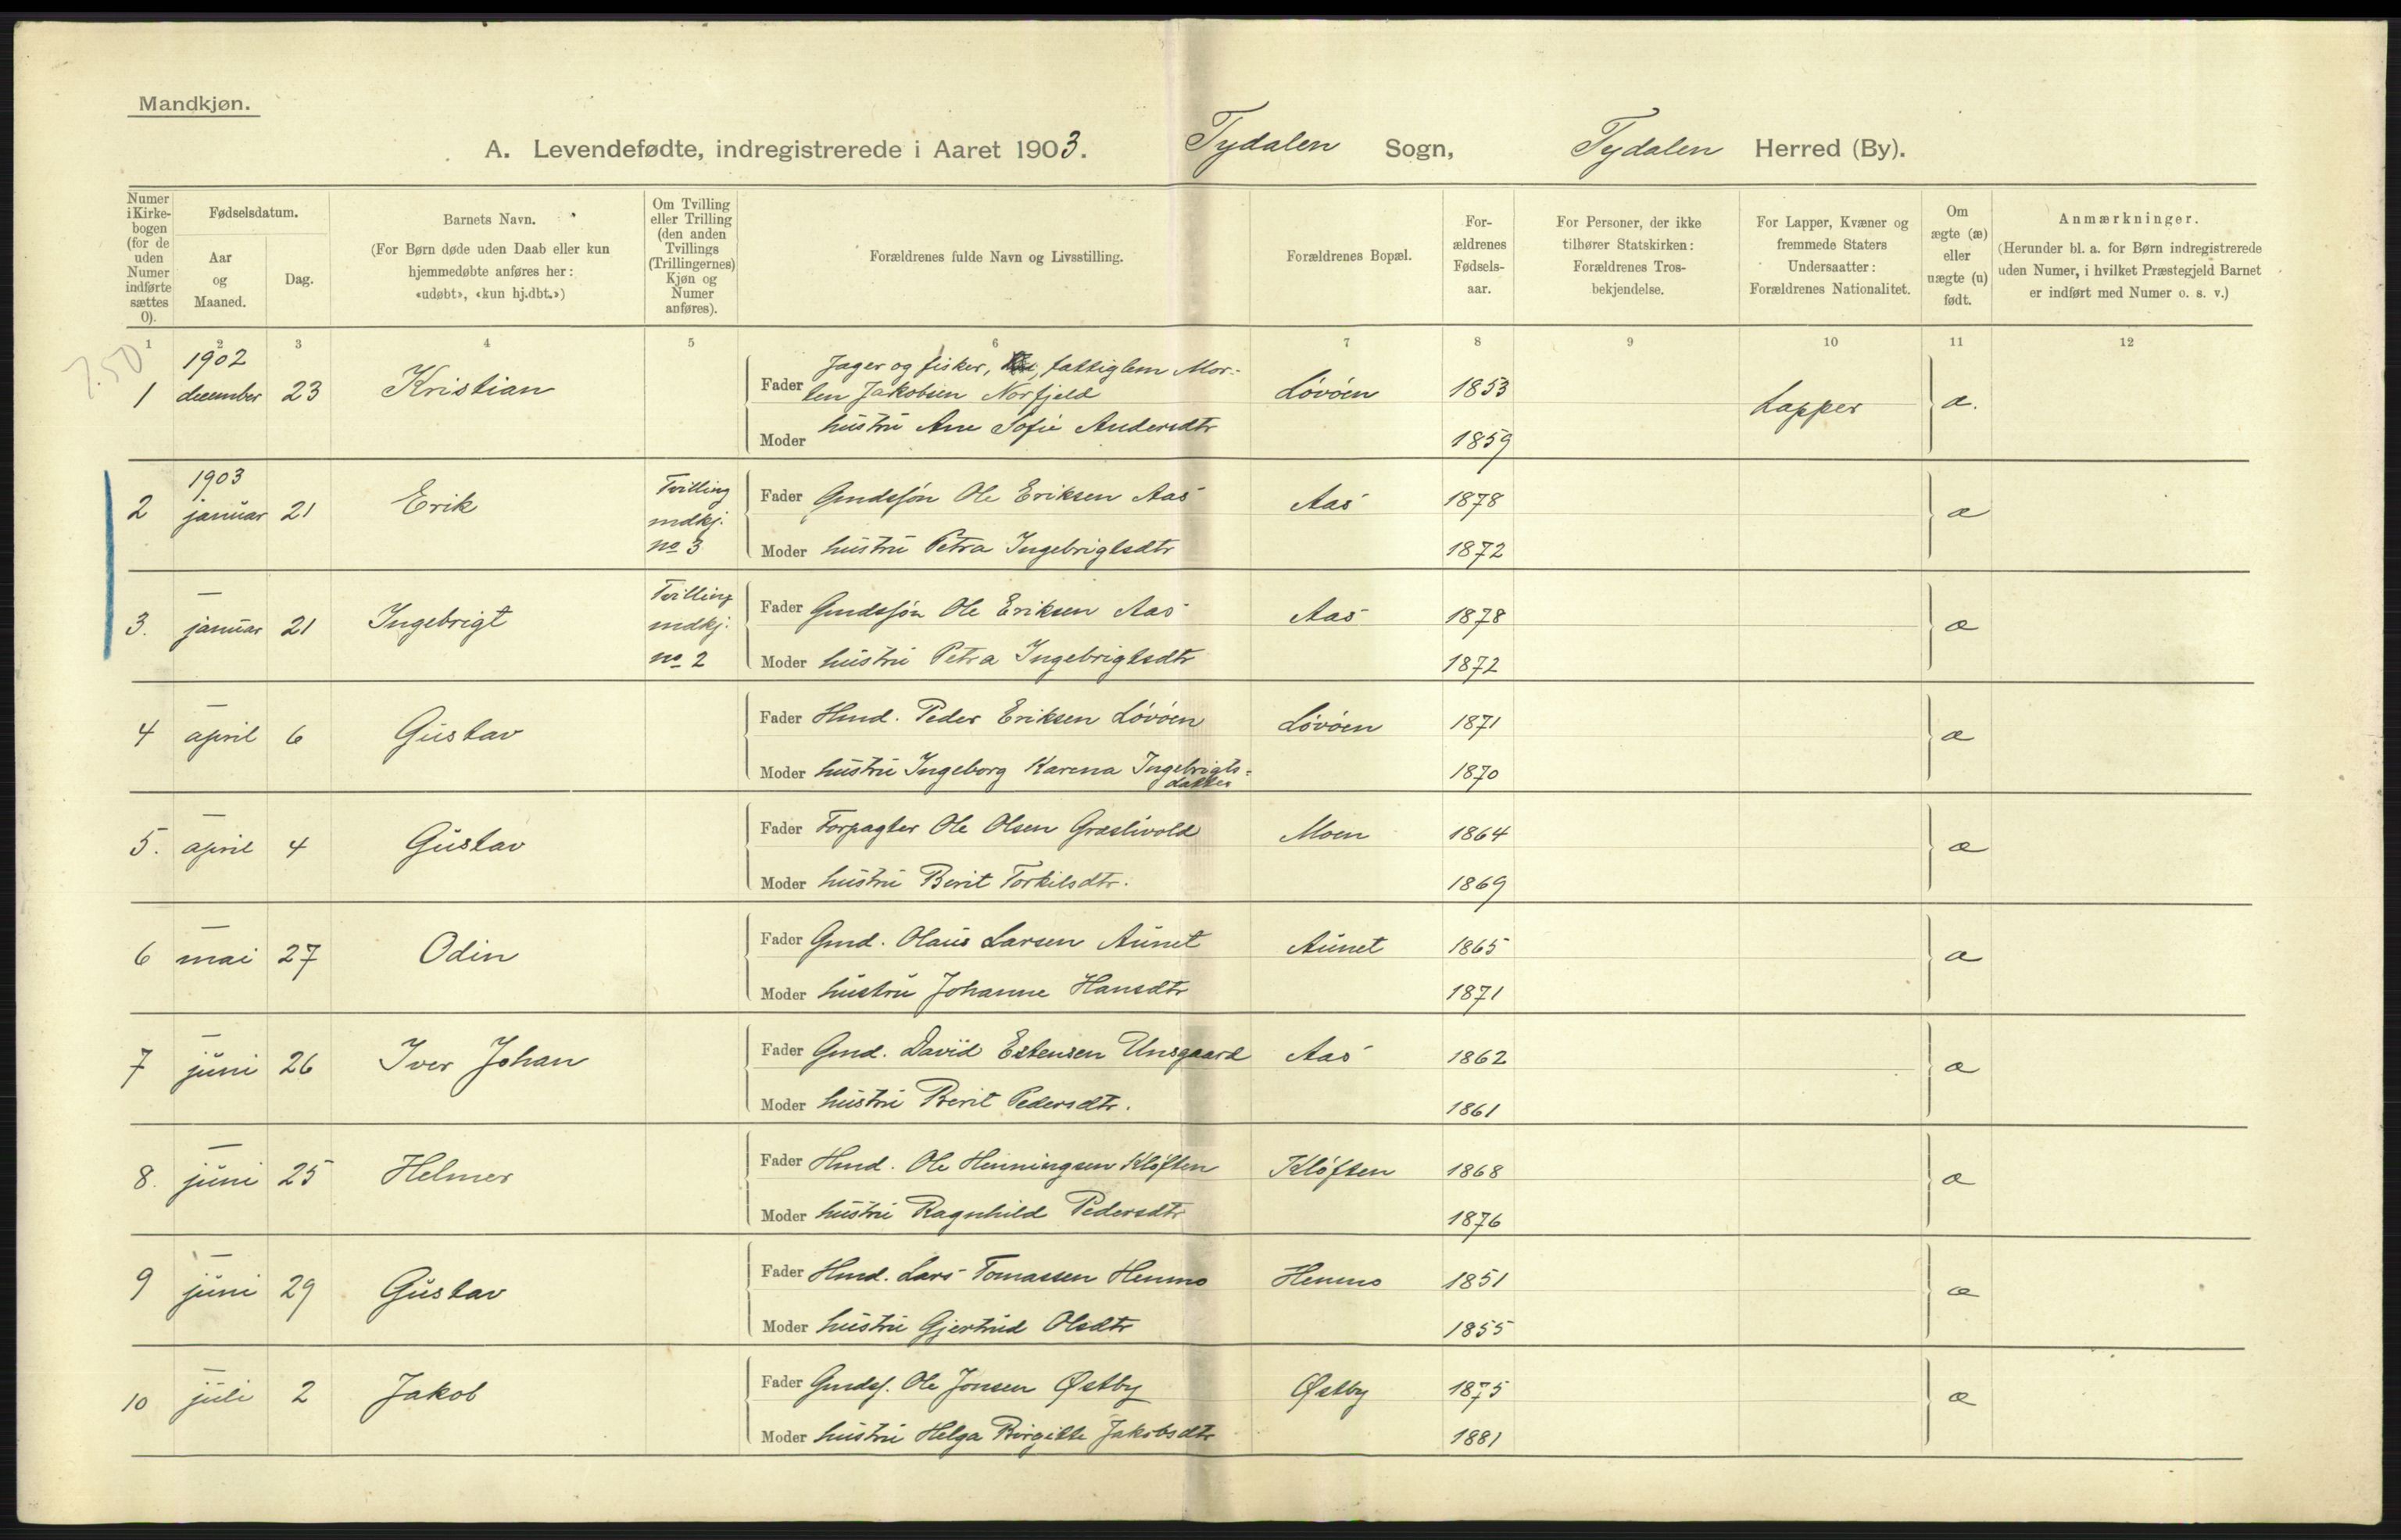 Mandkjøn.
A. Levendefødte, indregistrerede i Aaret 1903. Tydalen Sogn, Tydalen Herred (By).
Numer i Kirke-bogen (for de uden Numer indførte sættes 0).
Fødselsdatum.
Aar og Maaned.
Dag.
Barnets Navn.
(For Børn døde uden Daab eller kun hjemmedøbte anføres her: «udøbt», «kun hj.dbt.»)
Om Tvilling eller Trilling (den anden Tvillings (Trillingernes) Kjøn og Numer anføres).
Forældrenes fulde Navn og Livsstilling.
Forældrenes Bopæl.
For-ældrenes Fødsels-aar.
For Personer, der ikke tilhører Statskirken: Forældrenes Tros-bekjendelse.
For Lapper, Kvæner og fremmede Staters Undersaatter: Forældrenes Nationalitet.
Om ægte (æ) eller uægte (u) født.
Anmærkninger.
(Herunder bl. a. for Børn indregistrerede uden Numer, i hvilket Præstegjeld Barnet er indført med Numer o. s. v.)
1 2 3 4 5 6 7 8 9 10 11 12
7.50
1902
1 december 23 Kristian Fader Jæger og fisker, fattiglem Mor-
ten Jakobsen Norfjeld Løvøen 1853 Lapper æ.
Moder hustru Ane Sofie Andersdtr 1859
1903
2 januar 21 Erik Tvilling mdkj. no 3 Fader Gmdssøn Ole Eriksen Aas Aas 1878 æ
Moder hustru Petra Ingebrigtsdtr 1872
—
3. januar 21 Ingebrigt Tvilling mdkj. no 2 Fader Gmdssøn Ole Eriksen Aas Aas 1878 æ
Moder hustru Petra Ingebrigtsdtr 1872
—
4 april 6 Gustav Fader Hmd. Peder Eriksen Løvøen Løvøen 1871 æ
Moder hustru Ingeborg Karena Ingebrigts-
datter 1870
—
5. april 4 Gustav Fader Forpagter Ole Olsen Græslivold Moen 1864 æ
Moder hustru Berit Torkilsdtr. 1869
—
6 mai 27 Odin Fader Gmd. Olaus Larsen Aunet Aunet 1865 æ
Moder hustru Johanne Hansdtr 1871
—
7 juni 26 Iver Johan Fader Gmd. David Estensen Unsgaard Aas 1862 æ
Moder hustru Berit Pedersdtr. 1861
—
8. juni 25 Helmer Fader Hmd. Ole Henningsen Kløften Kløften 1868 æ
Moder hustru Ragnhild Pedersdtr 1876
—
9 juni 29 Gustav Fader Hmd. Lars Tomassen Henmo Henmo 1851 æ
Moder hustru Gjertrud Olsdtr 1855
—
10 juli 2 Jakob Fader Gmdss. Ole Jonsen Østby Østby 1875 æ
Moder hustru Helga Birgitte Jakobsdtr 1881